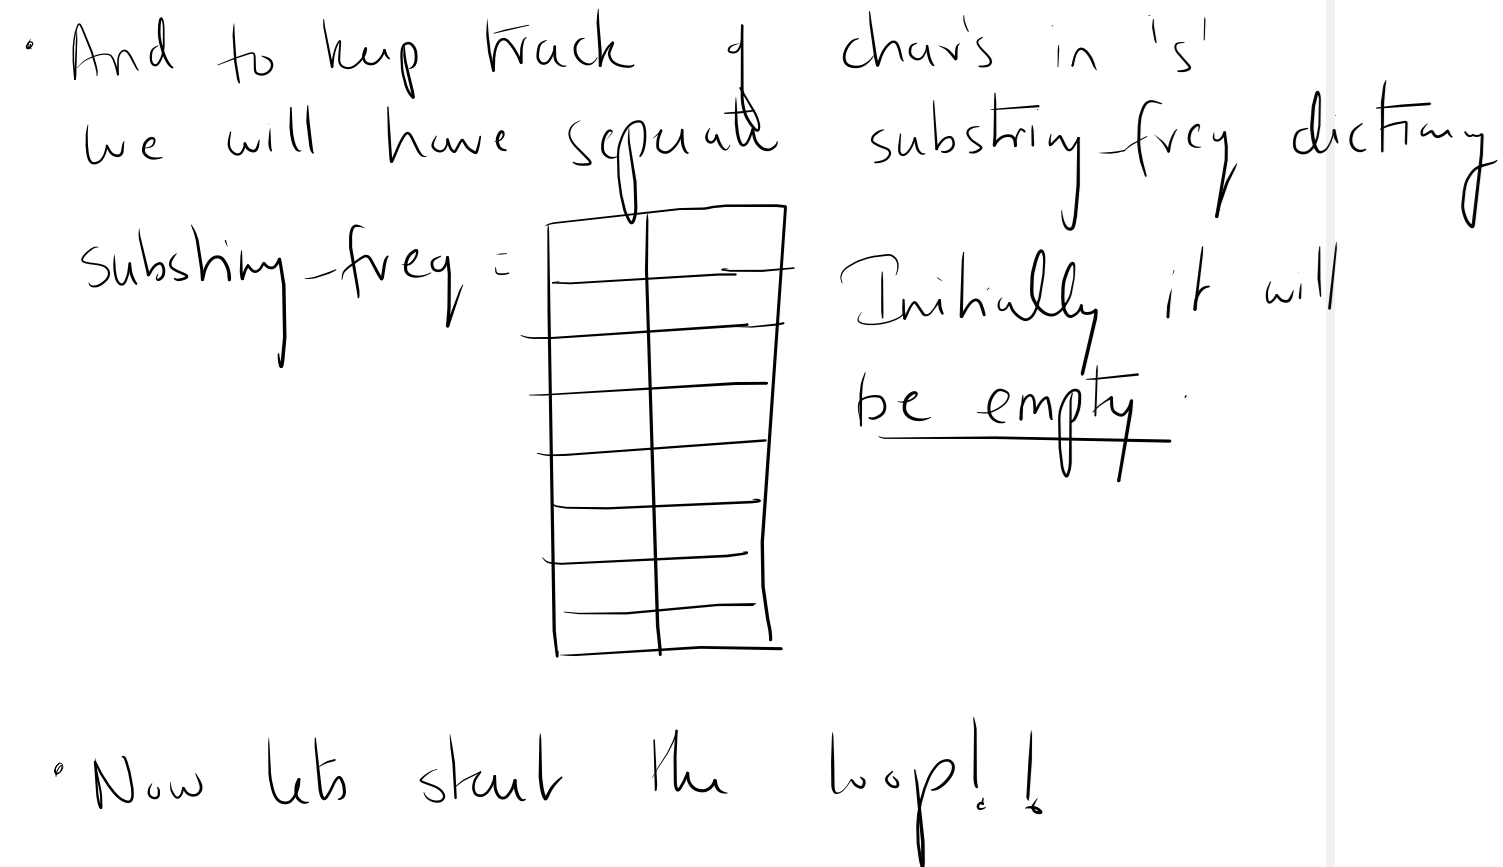 • And to keep track of char's in 's'
we will have separate substring_freq dictionary
substring_freq =
Initially it will
be empty.
• Now lets start the loop!!